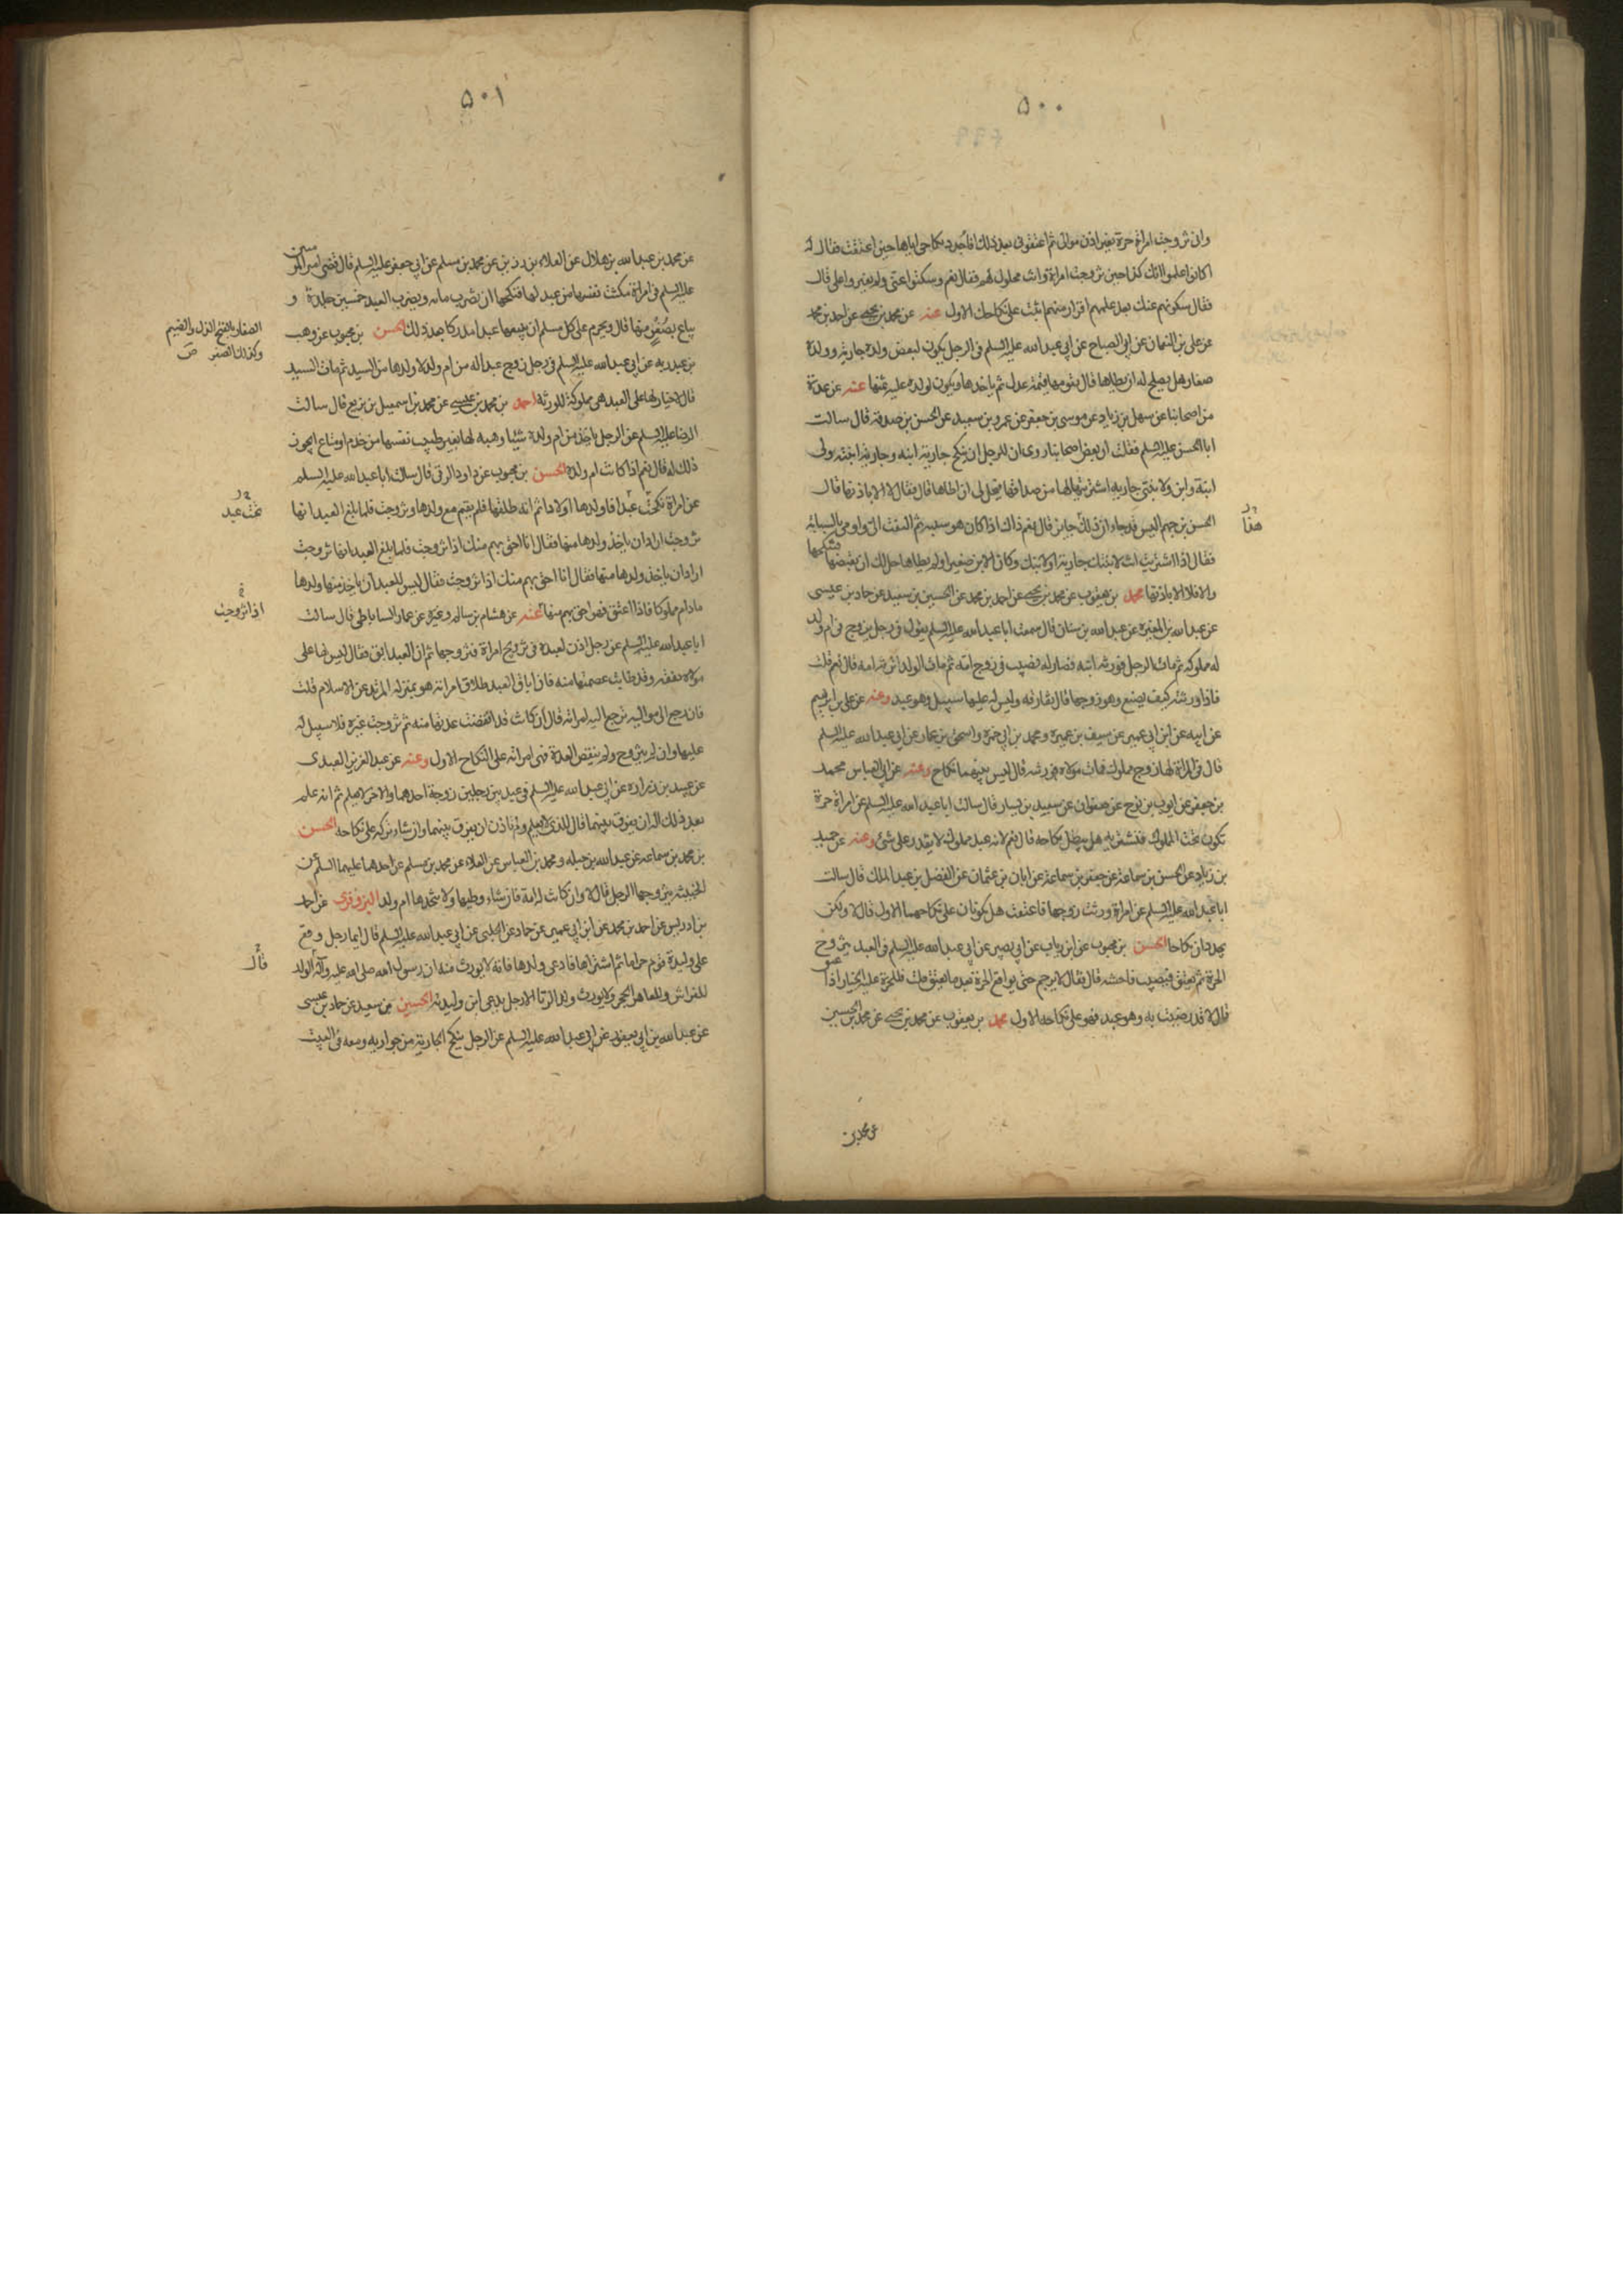 ٥٠٠
وانى تزوجت امراة حرة بغير اذن موالى ثم اعتقونى بعد ذلك افاجدد نكاحى اياها حين اعتقت فقال له
اكانوا علموا انك تزوجت امراة وانت مملوك لهم فقال نعم وسكتوا عنى ولم يغيروا على قال
فقال سكوتهم عنك بعد علمهم اقرار منهم اثبت على نكاحك الاول عنه عن محمد بن يحيى عن احمد بن محمد
عن على بن النعمان عن ابى الصباح عن ابى عبد الله عليه السلم فى الرجل يكون لبعض ولده جارية وولده
صغار هل يصلح له ان يطاها قال يقومها قيمة عدل ثم ياخذها ويكون لولده عليه ثمنها عنه عن عدة
من اصحابنا عن سهل بن زياد عن موسى بن جعفر عن عمرو بن سعيد عن الحسن بن صدقة قال سالت
ابا الحسن عليه السلم فقلت ان بعض اصحابنا روى ان للرجل ان ينكح جارية ابنه وجارية ابنته ولى
ابنة وابن ولابنتى جارية اشتريتها لها من صداقها فيحل لى ان اطاها قال فقال لا الا باذنها قال
الحسن بن جهم اليس قد جاء ان ذلك جايز قال نعم ذاك اذا كان هو سببه ثم التفت الى واومى بالسبابة
هذا
فقال اذا اشتريت انت لابنتك جارية او لابنك وكان الابن صغيرا ولم يطاها حل لك ان تقبضها فتنكحها
والا فلا الا باذنها محمد بن يعقوب عن محمد بن يحيى عن احمد بن محمد عن الحسين بن سعيد عن حماد بن عيسى
عن عبد الله بن المغيرة عن عبد الله بن سنان قال سمعت ابا عبد الله عليه السلم يقول فى رجل يزوج ام ولد
له مملوكه ثم مات الرجل فورثه ابنه فصار له نصيب فى زوج امه ثم مات الولد اترثه امه قال نعم قلت
فاذا ورثته كيف يصنع وهو زوجها قال تفارقه وليس له عليها سبيل وهو عبد وعنه عن على بن ابرهيم
عن ابيه عن ابن ابى عمير عن سيف بن عميرة ومحمد بن ابى حمزة واسحق بن عمار عن ابى عبد الله عليه السلم
قال فى امراة لها زوج مملوك فمات مولاه فورثته قال ليس بينهما نكاح وعنه عن ابى العباس محمد
بن جعفر عن ايوب بن نوح عن صفوان عن سعيد بن يسار قال سالت ابا عبد الله عليه السلم عن امراة حرة
تكون تحت المملوك فتشتريه هل يبطل نكاحه قال نعم لانه عبد مملوك لا يقدر على شئ وعنه عن حميد
بن زياد عن الحسن بن سماعة عن جعفر بن سماعة عن ابان بن عثمان عن الفضل بن عبد الملك قال سالت
ابا عبد الله عليه السلم عن امراة ورثت زوجها فاعتقته هل يكونان على نكاحهما الاول قال لا ولكن
يجددان نكاحا الحسن بن محبوب عن ابن رياب عن ابى بصير عن ابى عبد الله عليه السلم فى العبد يتزوج
الحرة ثم يعتق فيصيب فاحشة قال فقال لا يرجم حتى يواقع الحرة بعد ما يعتق قلت فللحرة عليه الخيار اذا
عتق
قال لا قد رضيت به وهو عبد فهو على نكاحه الاول محمد بن يعقوب عن محمد بن يحيى عن محمد بن الحسين
عن محمد بن
٥٠١
عن محمد بن عبد الله بن هلال عن العلاء بن رزين عن محمد بن مسلم عن ابى جعفر عليه السلم قال قضى امير المؤمنين
عليه السلم فى امراة مكنت نفسها من عبد لها فنكحها ان تضرب مائه ويضرب العبد خمسين جلدة و
يباع بصغر منها قال ويحرم على كل مسلم ان يبيعها عبدا مدركا بعد ذلك الحسن بن محبوب عن وهب
الصغار بالفتح الذل والضيم
وكذلك الصغر ص
بن عبد ربه عن ابى عبد الله عليه السلم فى رجل زوج عبدا له من ام ولد لا ولد لها من السيد ثم مات السيد
قال لا خيار لها على العبد هى مملوكة للورثة احمد بن محمد بن عيسى عن محمد بن اسمعيل بن بزيع قال سالت
الرضا عليه السلم عن الرجل ياخذ من ام ولده شيئا وهبه لها بغير طيب نفسها من خدم او متاع ايجوز
ذلك له قال نعم اذا كانت ام ولده الحسن بن محبوب عن داود الرقى قال سالت ابا عبد الله عليه السلم
عن امراة نكحت عبدا فاولدها اولادا ثم انه طلقها فلم تقم مع ولدها وتزوجت فلما بلغ العبد انها
تحت عبد
تزوجت اراد ان ياخذ ولدها منها فقال انا احق بهم منك اذا تزوجت فلما بلغ العبد انها تزوجت
اراد ان ياخذ ولدها منها فقال انا احق بهم منك اذا تزوجت فقال ليس للعبد ان ياخذ منها ولدها
اذا تزوجت
مادام مملوكا فاذا اعتق فهو احق بهم منها عنه عن هشام بن سالم وغيره عن عمار الساباطى قال سالت
ابا عبد الله عليه السلم عن رجل اذن لعبده فى تزويج امراة فتزوجها ثم ان العبد ابق فقال ليس لها على
مولاه نفقه وقد بانت عصمتها منه فان اباق العبد طلاق امراته هو بمنزلة المرتد عن الاسلام قلت
فان رجع الى مواليه ترجع اليه امراته قال ان كانت قد انقضت عدتها منه ثم تزوجت غيره فلا سبيل له
عليها وان لم يتزوج ولم ينقض العدة فهى امراته على النكاح الاول وعنه عن عبد العزيز العبدى
عن عبيد بن زرارة عن ابى عبد الله عليه السلم فى عبد بين رجلين زوجه احدهما والاخر لا يعلم ثم انه علم
بعد ذلك اله ان يفرق بينهما قال للذى لا يعلم ولم ياذن ان يفرق بينهما وان شاء تركه على نكاحه الحسن
بن محمد بن سماعه عن عبد الله بن جبله ومحمد بن العباس عن العلاء عن محمد بن مسلم عن احدهما عليهما السلم فى
الخبيثة يتزوجها الرجل قال لا وان كانت له امة فان شاء وطيها ولا يتخذها ام ولد البزوفرى عن احمد
بن ادريس عن احمد بن محمد عن ابن ابى عمير عن حماد عن الحلبى عن ابى عبد الله عليه السلم قال ايما رجل وقع
على وليدة قوم حراما ثم اشتراها فادعى ولدها فانه لا يورث منه ان رسول الله صلى الله عليه وآله الولد
قال
للفراش وللعاهر الحجر ولا يورث ولد الزنا الا رجل يدعى ابن وليدته الحسين بن سعيد عن حماد بن عيسى
عن عبد الله بن ابى يعفور عن ابى عبد الله عليه السلم عن الرجل ينكح الجارية من جواريه ومعه فى البيت